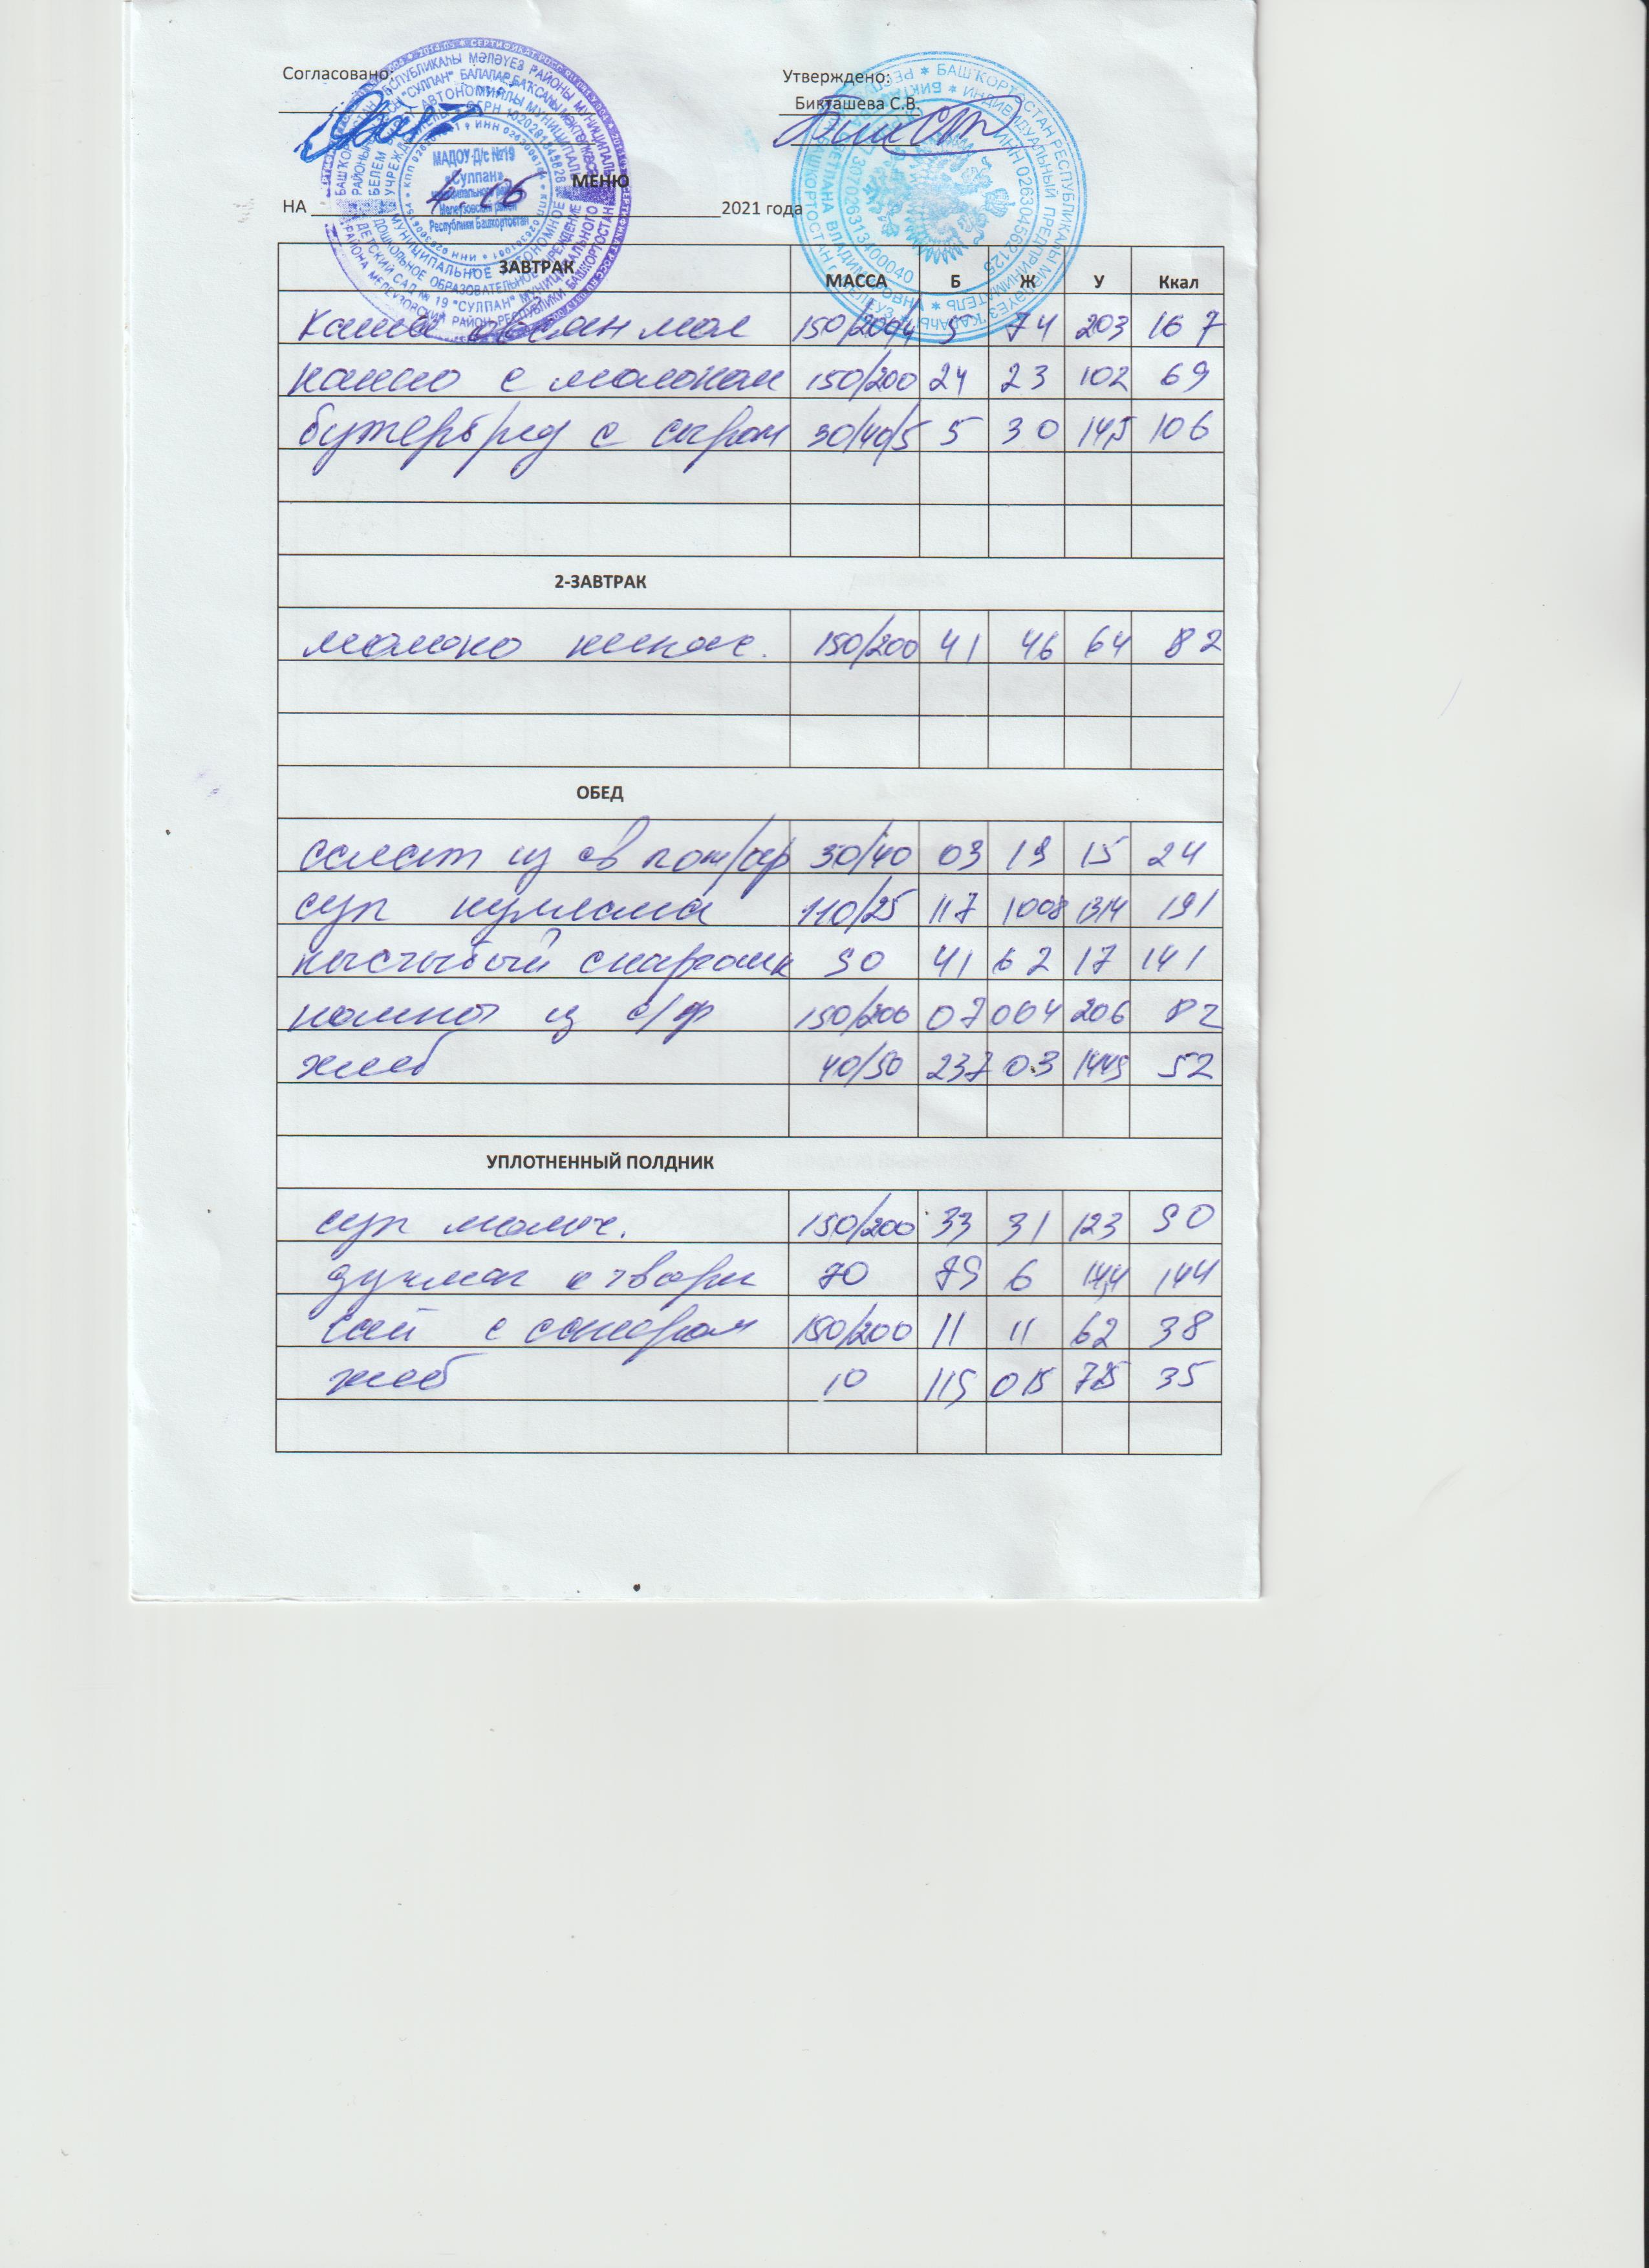 Согласовано:
Утверждено:
Бикташева С.В.
МАДОУ Д/с №19
«Сулпан»
Республики Башкортостан
МЕНЮ
НА 4.06 2021 года
ЗАВТРАК МАССА Б Ж У Ккал
каша мол 150/200/4 5 74 203 167
какао с молоком 150/200 24 23 102 69
бутерброд с сыром 30/40/5 5 30 145 106
2-ЗАВТРАК
молоко кипяч. 150/200 41 46 64 82
ОБЕД
салат из св пом/ог 30/40 03 19 15 24
суп куллама 110/25 117 1008 1314 191
кыстыбый с картошк 90 41 62 17 141
компот из с/ф 150/200 07 004 206 82
хлеб 40/50 237 03 1449 52
УПЛОТНЕННЫЙ ПОЛДНИК
суп молоч. 150/200 33 31 123 90
70 79 6 144
чай с сахаром 150/200 11 11 62 38
хлеб 10 115 015 725 35